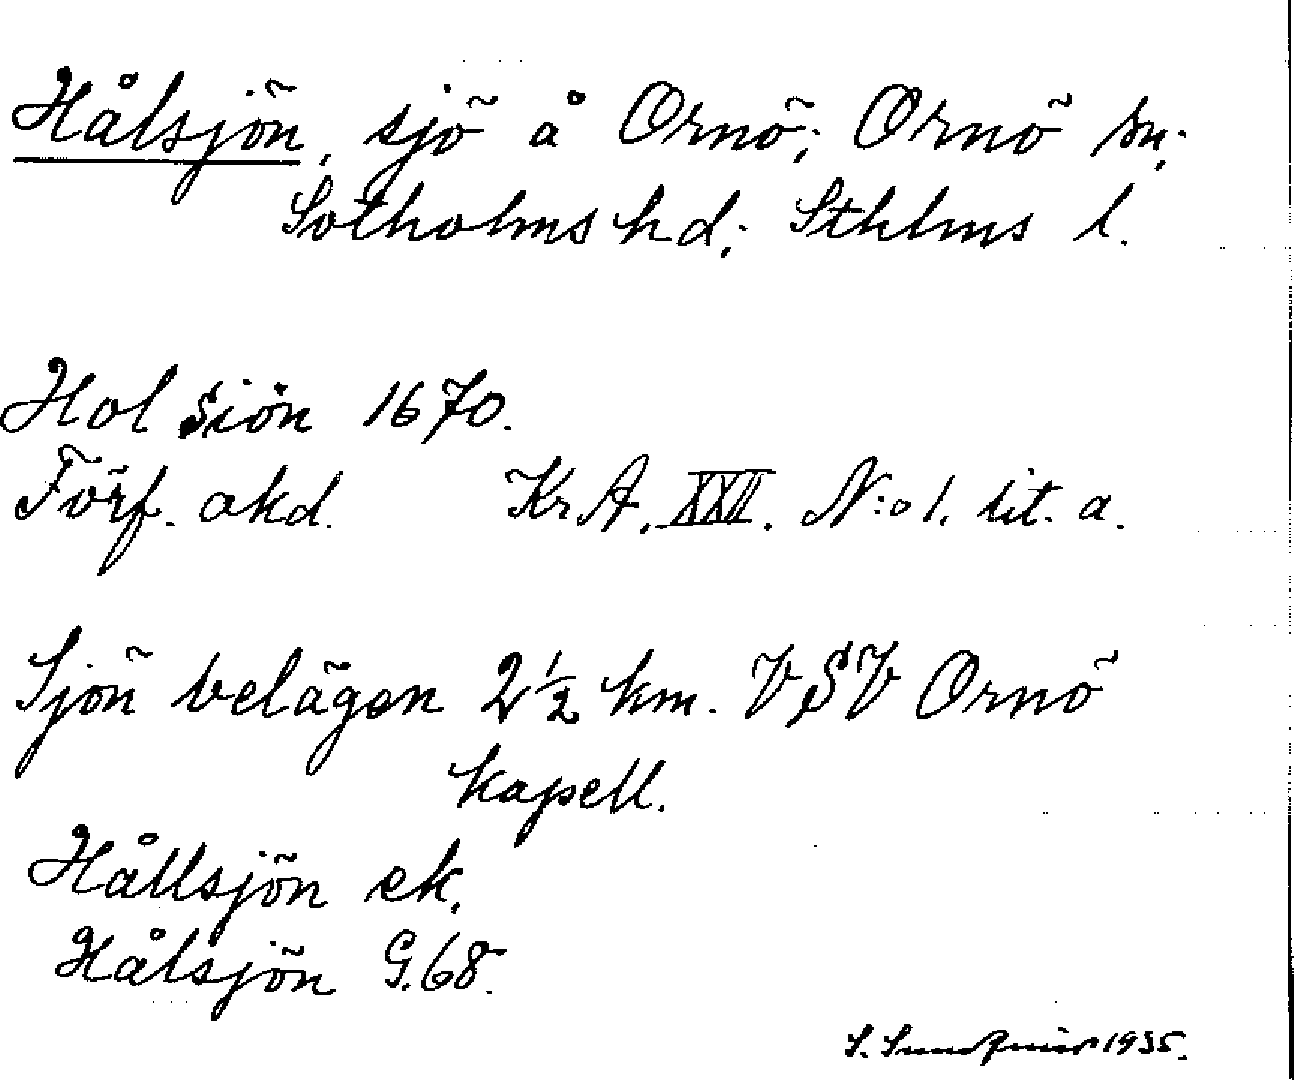 Hålsjön, sjö å Ornö; Ornö sn;
Sotholms hd; Sthlms l.
Hol siön 1670.
Förf. okd. KrA. XXII. N:o 1. lit. a.
Sjön belägen 2 1/2 km. VSV Ornö
kapell.
Hållsjön ek.
Hålsjön G.68.
S. Sundqvist 1935.